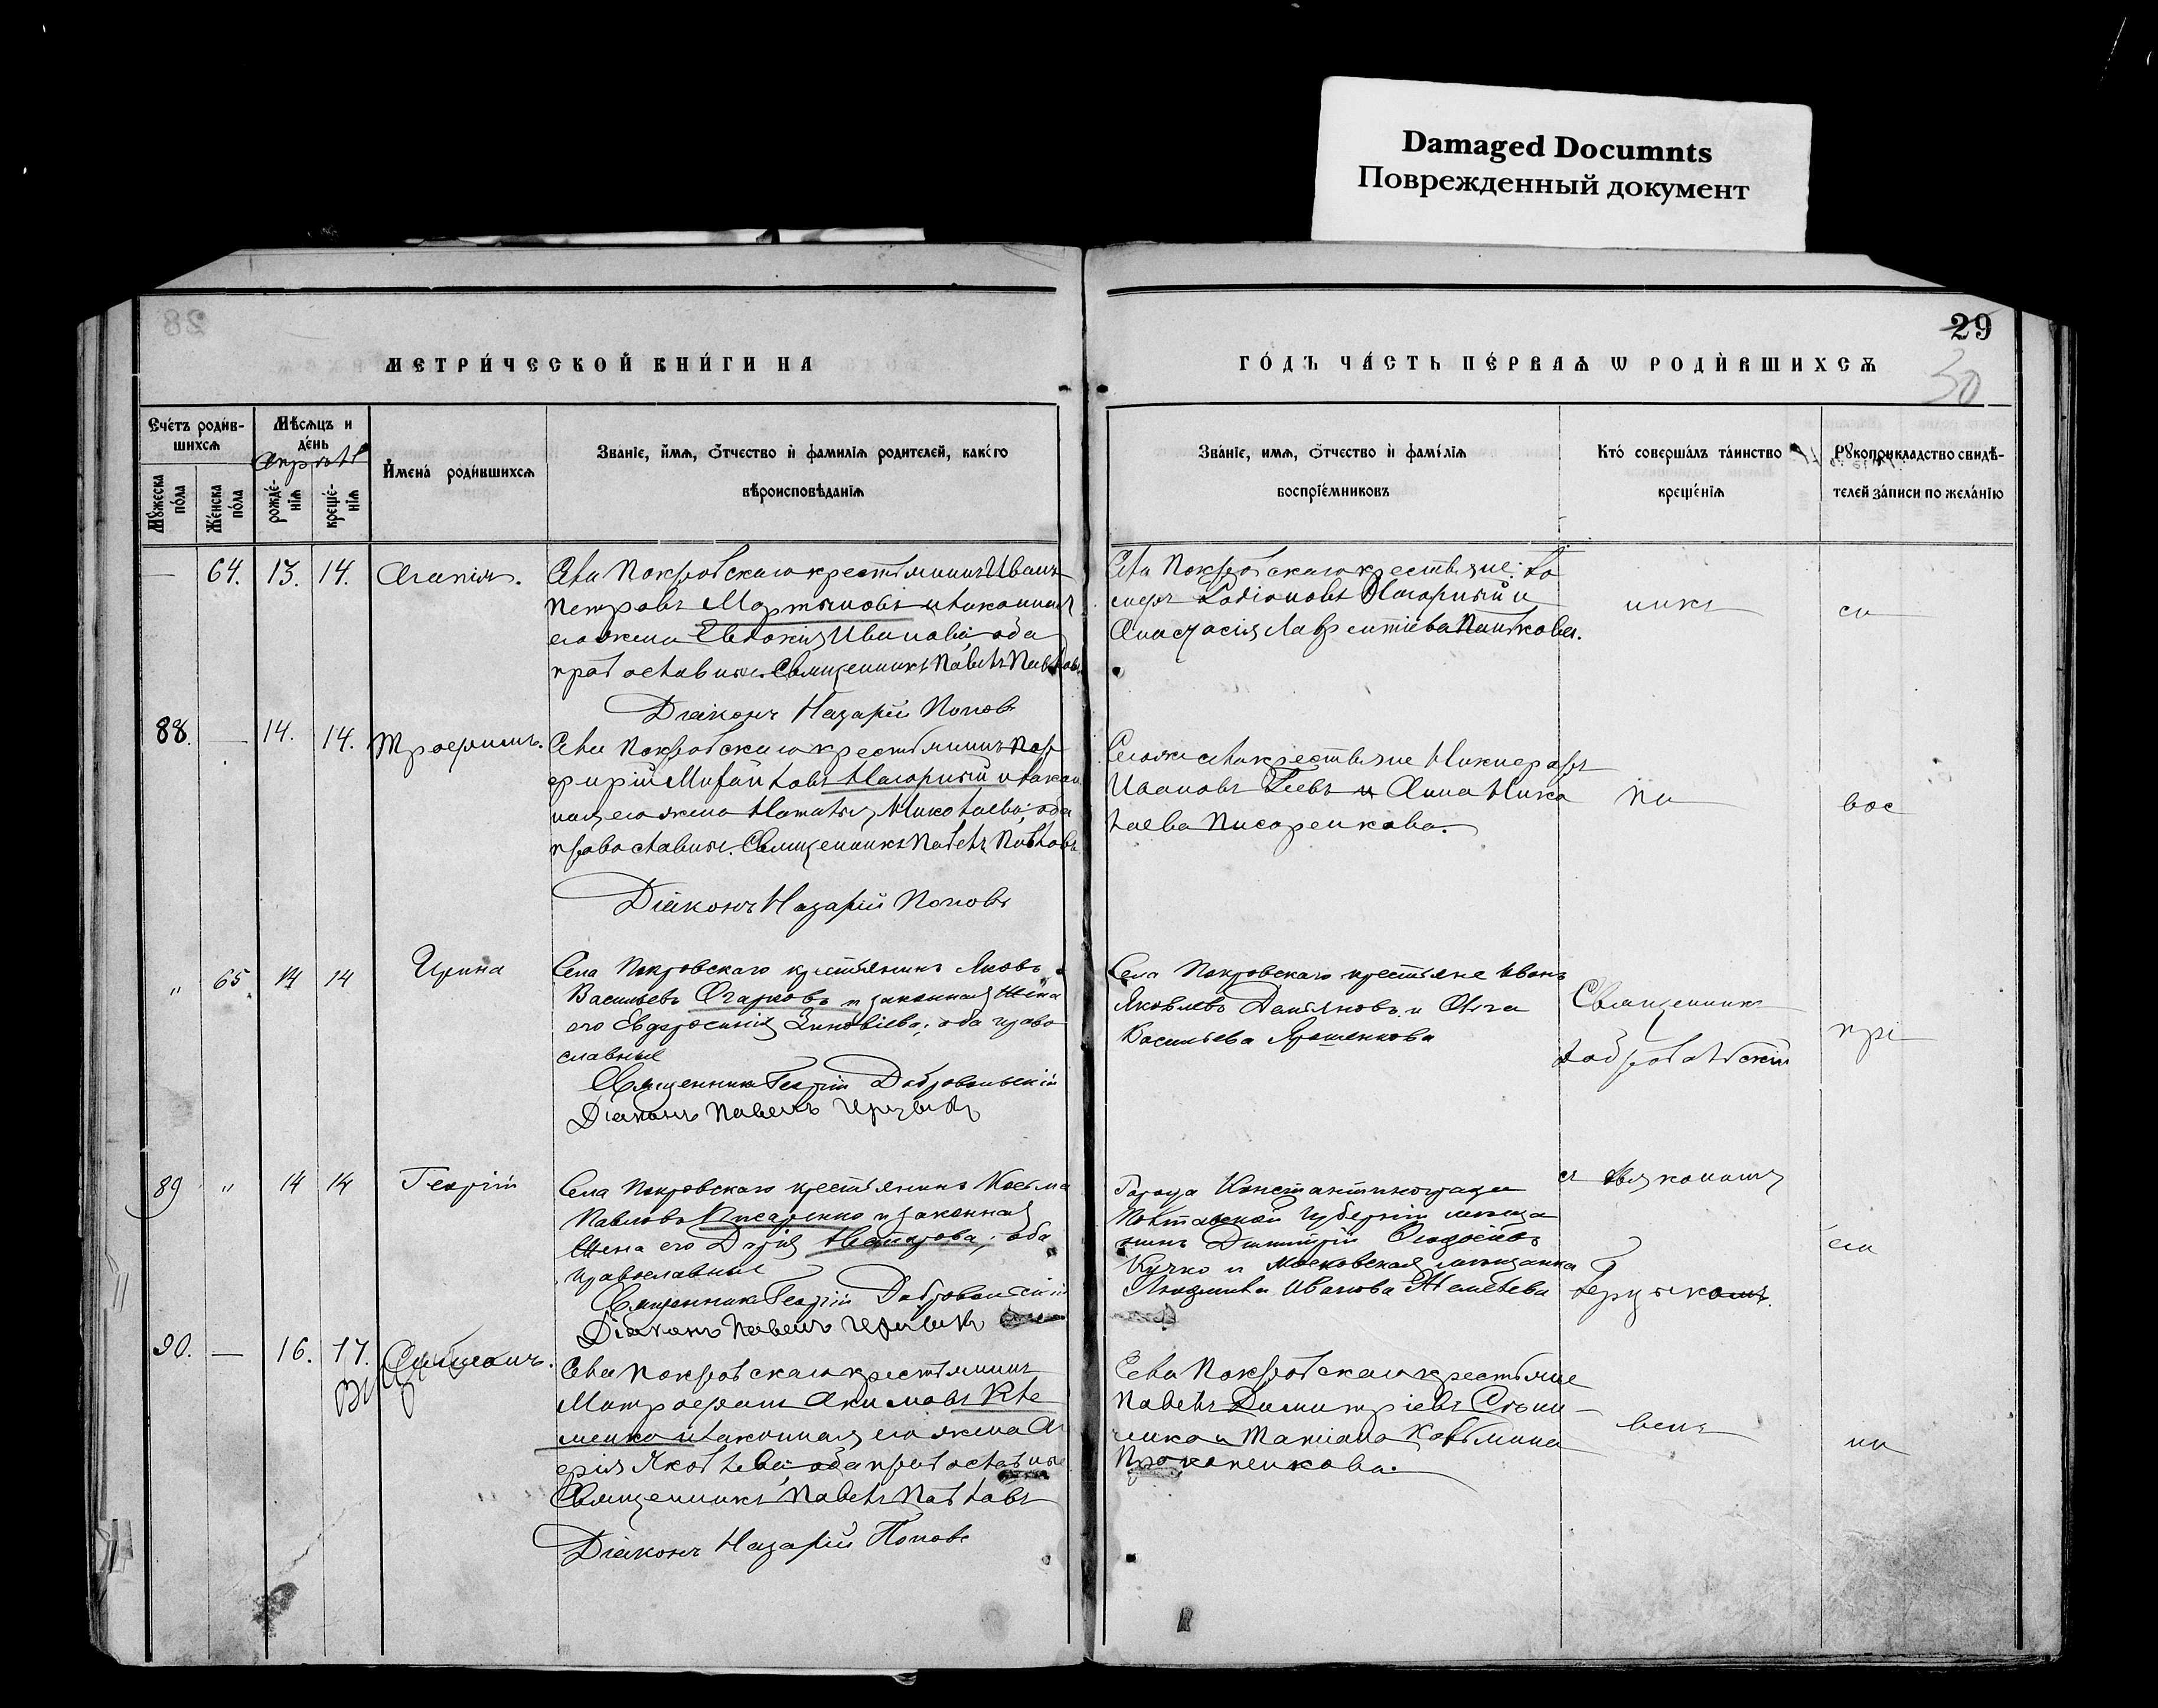 Damaged Documnts
Поврежденный документ
28
29
30
МЕТРИ́ЧЕСКОЙ КНИ́ГИ НА
ГО́ДЪ ЧА́СТЬ ПЕ́РВАѦ Ѡ РОДИ́ВШИХСѦ
Счéтъ роди́в-
шихсѧ
Мѣ́сѧцъ и
дéнь
Апрѣль
Мꙋ́жеска
по́ла
Же́нска
по́ла
рождé-
нїѧ
крещé-
нїѧ
И́мена́ роди́вшихсѧ
Зва́нїе, и́мѧ, о́тчество и́ фамилїѧ родителей, како́го
вѣроисповѣ́данїѧ
Зва́нїе, имѧ, о́тчество и́ фамі́лїѧ
воспрїе́мниковъ
Кто́ соверша́лъ та́инство
креще́нїѧ
Рꙋкоприкладство свидѣ́-
телей за́писи по жела́нїю
— 64. 13. 14. Агапія.
Села Покровскаго крестьянинъ Иванъ
Петровъ Мартыновъ и законная
его жена Евдокія Иванова, оба
православные. Священникъ Павелъ Павловъ
Діаконъ Назарій Попов
Села Покровскаго крестьяне:
Родіоновъ Нагорный и
Анастасія Лаврентіева Панькова.
никъ
си
88. — 14. 14. Трофимъ.
Села Покровскаго крестьянинъ Пор
фирій Михайловъ Нагорный и закон
ная его жена Наталія Николаева, оба
православные. Священникъ Павелъ Павловъ
Діаконъ Назарій Поповъ
Того же села крестьяне Никифоръ
Ивановъ Геевъ и Анна Нико
лаева Писаренкова.
Па
вос
„ 65 14 14 Ирина
Села Покровскаго крестьянинъ Яковъ
Васильевъ Огарковъ и законная жена
его Евфросинія Зиновіева; оба право
славные
Священникъ Георгій Добровольскій
Діаконъ Павелъ
Села Покровскаго крестьяне Иванъ
Яковлевъ Демьяновъ и Ольга
Васильева Ярошенкова
Священник
Добровольскій
прі
89 „ 14 14 Георгій
Села Покровскаго крестьянинъ Косьма
Павловъ Писаренко и законная
жена его Дарія Назарова; оба
православные
Священникъ Георгій Добровольскій
Діаконъ Павелъ
Города Константинограда
Полтавской губерніи мѣща
нинъ Димитрій Ѳеодосіевъ
Кучко и Московская мѣщанка
Людмила Иванова
съ діакономъ
90. — 16. 17. Симеонъ.
Села Покровскаго крестьянинъ
Митрофанъ Акимовъ Кле
менко и законная его жена Аг
афія Яковлева; оба православные
Священникъ Павелъ Павловъ
Діаконъ Назарій Поповъ
Села Покровскаго крестьяне
Павелъ Димитріевъ
и Татіана Козьмина
Прокопенкова.
велъ
ни